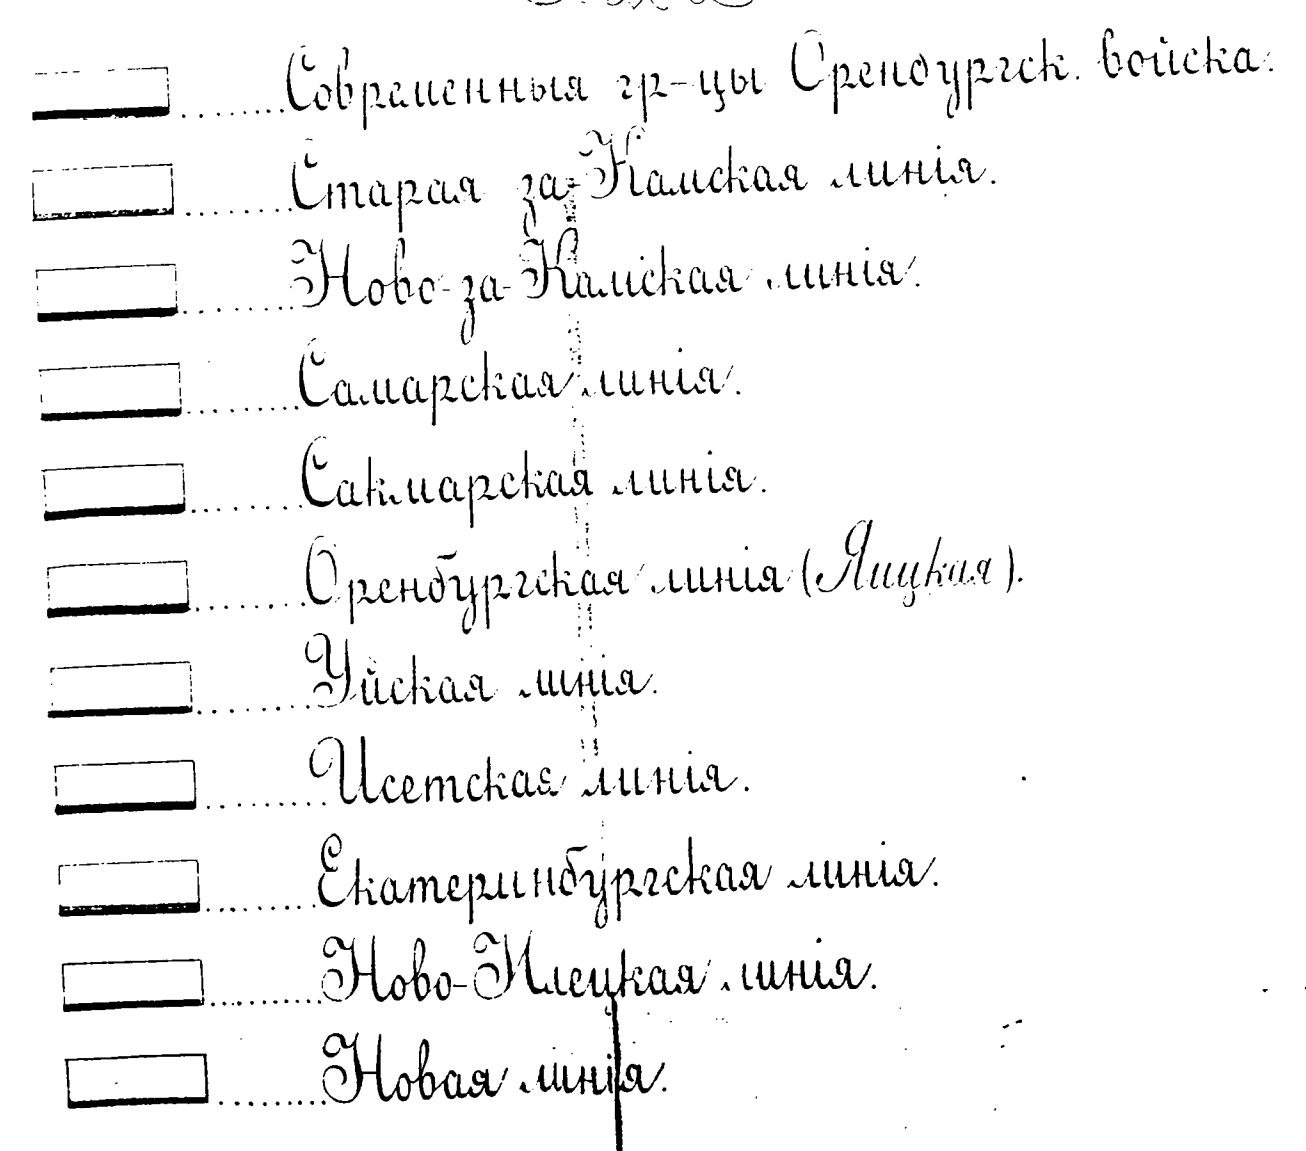 Современныя гр-цы Оренбургск. войска.
Старая за-Камская линія.
Ново-за-Камская линія.
Самарская линія.
Сакмарская линія.
Оренбургская линія (Яицкая).
Уйская линія.
Исетская линія.
Екатеринбургская линія.
Ново-Илецкая линія.
Новая линія.